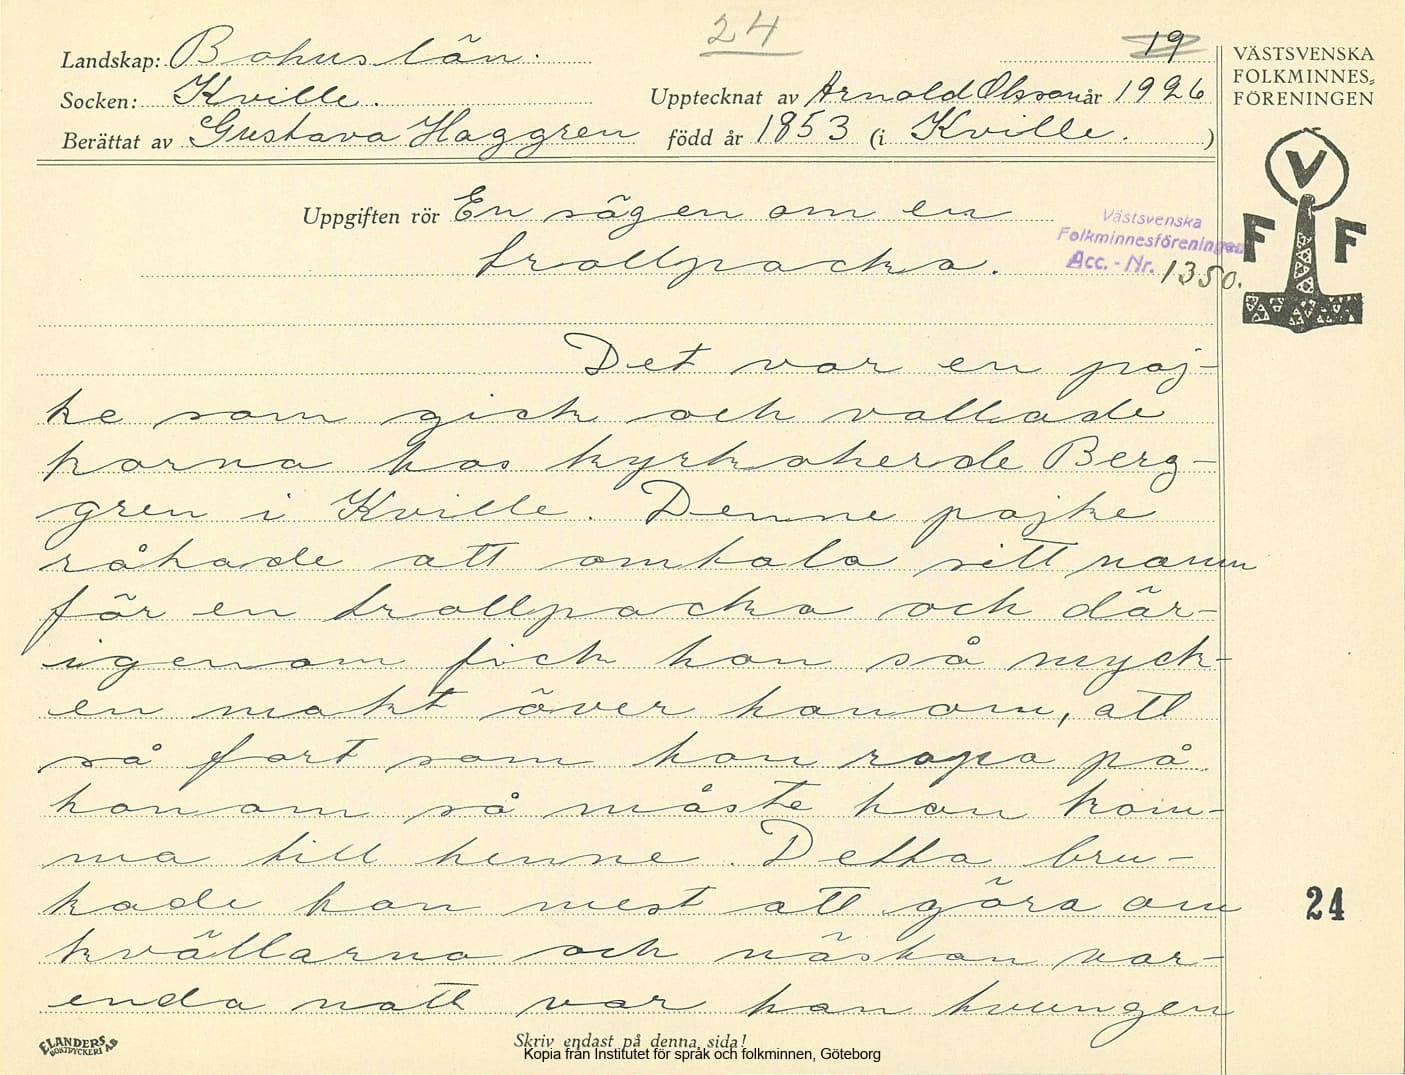 24
19
Landskap: Bohuslän.
Socken: Kville.
Upptecknat av Arnold Olsson år 1926
Berättat av Gustava Haggren född år 1853 (i Kville. )
VÄSTSVENSKA
FOLKMINNES=
FÖRENINGEN
V
F F
Uppgiften rör En sägen om en
trollpacka.
Västsvenska
Folkminnesföreningen
Acc. - Nr. 1350.
Det var en poj-
ke som gick och vallade
korna hos kyrkoherde Berg-
gren i Kville. Denne pojke
råkade att omtala sitt namn
för en trollpacka och där-
igenom fick hon så myck-
en makt över honom, att
så fort som hon ropa på
honom så måste han kom-
ma till henne. Detta bru-
kade hon mest att göra om
kvällarna och nästan var-
enda natt var han tvungen
24
ELANDERS
BOKTRYCKERI AB
Skriv endast på denna sida!
Kopia från Institutet för språk och folkminnen, Göteborg